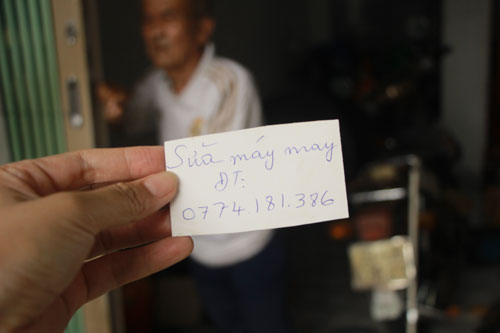 Sửa máy may
ĐT:
0774.181.386